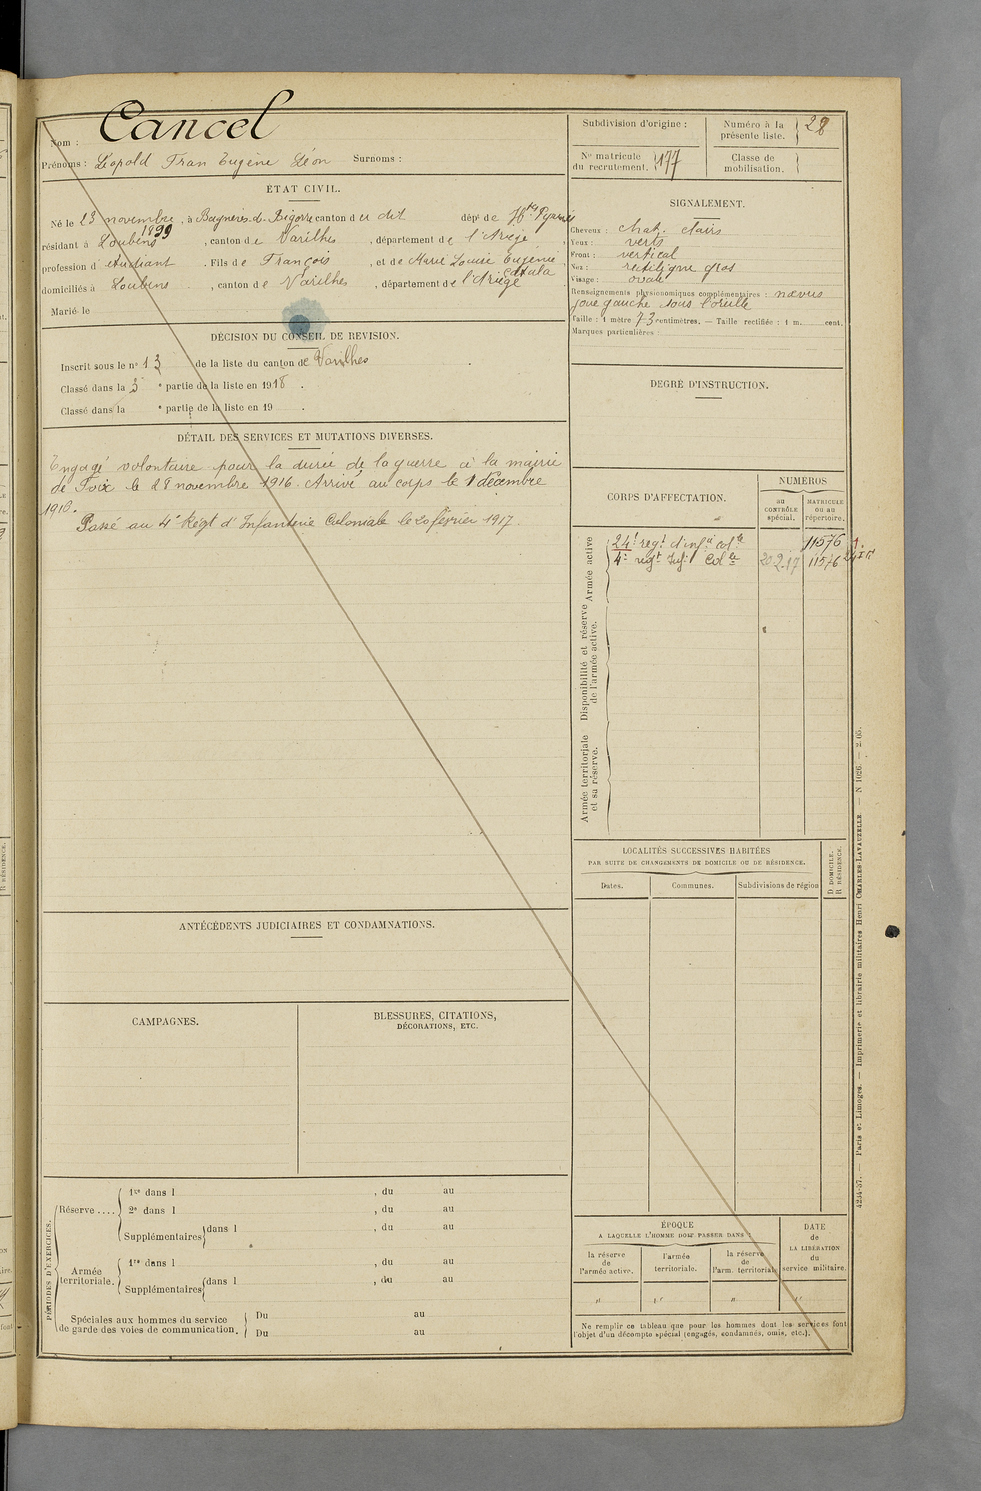 Nom : Cancel
Prénoms : Léopold Jean Eugène Léon Surnoms :
ÉTAT CIVIL.
Né le 23 novembre 1899, à Bagnères-de-Bigorre canton du dit dépt de Htes Pyrénées
résidant à Loubens, canton de Varilhes, département de l'Ariège,
profession d'étudiant. Fils de François, et de Marie Louise Eugénie
domiciliés à Loubens, canton de Varilhes, département de l'Ariège
Marié le
DÉCISION DU CONSEIL DE REVISION.
Inscrit sous le no 13 de la liste du canton de Varilhes
Classé dans la 3e partie de la liste en 1918.
Classé dans la e partie de la liste en 19 .
DÉTAIL DES SERVICES ET MUTATIONS DIVERSES.
Engagé volontaire pour la durée de la guerre à la mairie
de Foix le 28 novembre 1916. Arrivé au corps le 1 décembre
1916.
Passé au 4e Régt d'Infanterie Coloniale le 20 février 1917.
ANTÉCÉDENTS JUDICIAIRES ET CONDAMNATIONS.
CAMPAGNES.
BLESSURES, CITATIONS,
DÉCORATIONS, ETC.
PÉRIODES D'EXERCICES.
Réserve ....
1re dans l , du au
2e dans l , du au
Supplémentaires dans l , du au
Armée territoriale.
1re dans l , du au
Supplémentaires dans l , du au
Spéciales aux hommes du service
de garde des voies de communication.
Du au
Du au
Subdivision d'origine :
Numéro à la
présente liste. 28
No matricule
du recrutement. 177
Classe de
mobilisation.
SIGNALEMENT.
Cheveux : chat. clairs
Yeux : verts
Front : vertical
Nez : rectiligne gros
Visage : ovale
Renseignements physionomiques complémentaires : nævus
joue gauche sous l'oreille
Taille : 1 mètre 73 centimètres. — Taille rectifiée : 1 m. cent.
Marques particulières :
DEGRÉ D'INSTRUCTION.
CORPS D'AFFECTATION.
NUMÉROS
au
CONTRÔLE
spécial.
MATRICULE
ou au
répertoire.
Armée active
24e regt d'infie colle 11576
4e regt Inf. Colle 20.2.17 11576
Disponibilité et réserve
de l'armée active.
Armée territoriale
et sa réserve.
LOCALITÉS SUCCESSIVES HABITÉES
PAR SUITE DE CHANGEMENTS DE DOMICILE OU DE RÉSIDENCE.
Dates.
Communes.
Subdivisions de région
D. DOMICILE.
R. RÉSIDENCE.
ÉPOQUE
A LAQUELLE L'HOMME DOIT PASSER DANS :
la réserve
de
l'armée active.
l'armée
territoriale.
la réserve
de
l'arm. territoriale
DATE
de
LA LIBÉRATION
du
service militaire.
" " " "
Ne remplir ce tableau que pour les hommes dont les services font
l'objet d'un décompte spécial (engagés, condamnés, omis, etc.).
4234-37. — Paris et Limoges. — Imprimerie et librairie militaires Henri CHARLES-LAVAUZELLE. — N 1026. — 2 05.